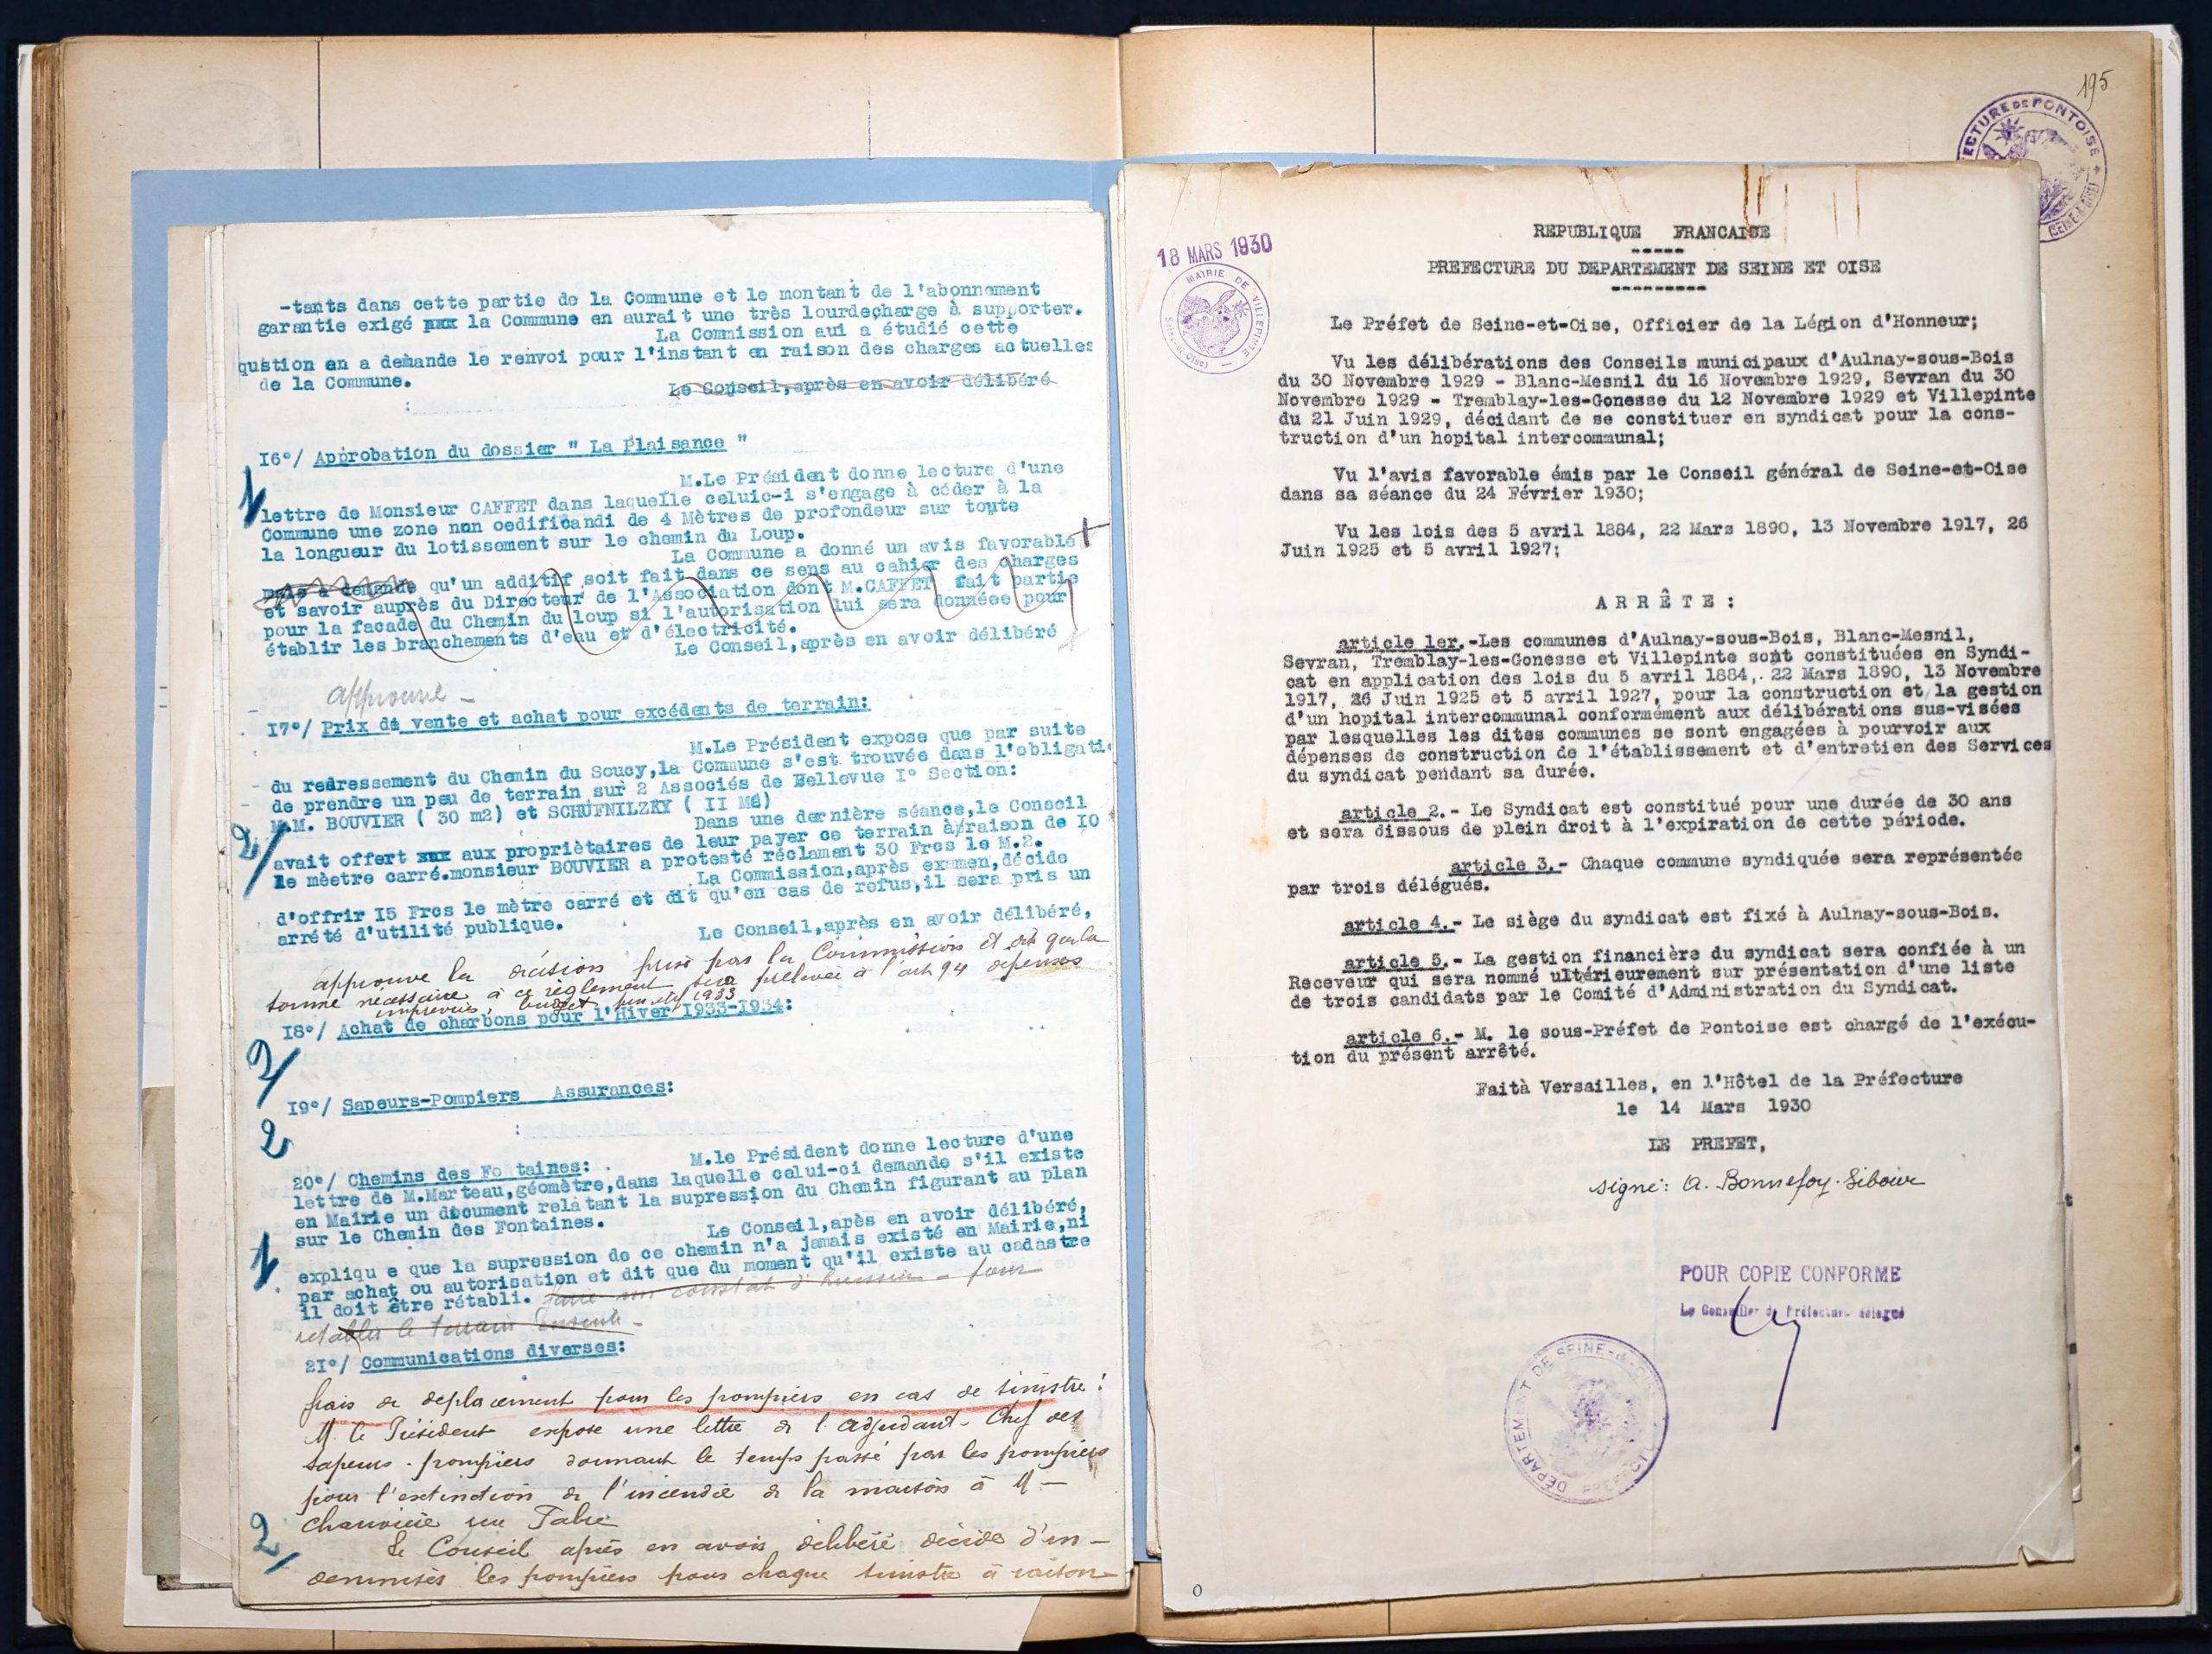 -tants dans cette partie de la Commune et le montant de l'abonnement
garantie exigé xxx la Commune en aurait une très lourdeçharge à supporter.
La Commission aui a étudié cette
qustion en a demande le renvoi pour l'instant en raison des charges actuelles
de la Commune.
Le Conseil,après en avoir délibéré
I6°/ Approbation du dossier " La Plaisance "
M.Le Président donne lecture d'une
1/
lettre de Monsieur CAFFET dans laquelle celuic-i s'engage à céder à la
Commune une zone non oedificandi de 4 Mètres de profondeur sur toute
la longueur du lotissement sur le chemin du Loup.
La Commune a donné un avis favorable +
mais a demande qu'un additif soit fait dans ce sens au cahier des charges
et savoir auprès du Directeur de l'Association dont M.CAFFET fait partie
pour la facade du Chemin du loup si l'autorisation lui sera donnéee pour
établir les branchements d'eau et d'électricité.
Le Conseil,après en avoir délibéré
approuve -
I7°/ Prix de vente et achat pour excédents de terrain:
M.Le Président expose que par suite
du redressement du Chemin du Soucy,la Commune s'est trouvée dans l'obligati
de prendre un peu de terrain sur 2 Associés de Bellevue I° Section:
M.M. BOUVIER ( 30 m2) et SCHUFNILZKY ( II M2)
Dans une dernière séance,le Conseil
2/
avait offert xxx aux propriètaires de leur payer ce terrain à raison de IO
le mèetre carré.monsieur BOUVIER a protesté réclamant 30 Frcs le M.2.
La Commission,après examen,décide
d'offrir I5 Frcs le mètre carré et dit qu'en cas de refus,il sera pris un
arrété d'utilité publique.
Le Conseil,après en avoir délibéré,
approuve la décision prise par la Commission et dit que la
somme nécessaire à ce règlement sera prélevée à l'art 94 dépenses
imprévues, budget primitif 1933
I8°/ Achat de charbons pour l'Hiver I933-I934:
2/
I9°/ Sapeurs-Pompiers Assurances:
2
20°/ Chemins des Fo taines:
M.le Président donne lecture d'une
lettre de M.Marteau,géomètre,dans laquelle celui-ci demande s'il existe
en Mairie un document relatant la supression du Chemin figurant au plan
sur le Chemin des Fontaines.
Le Conseil,apès en avoir délibéré,
1/
expliqu e que la supression de ce chemin n'a jamais existé en Mairie,ni
par achat ou autorisation et dit que du moment qu'il existe au cadastre
il doit être rétabli. faire un constat d'huissier - pour
rétablir le terrain ensuite -
2I°/ Communications diverses:
frais de déplacement pour les pompiers en cas de sinistre :
M. le Président expose une lettre de l'Adjudant-Chef des
sapeurs-pompiers donnant le temps passé par les pompiers
pour l'extinction de l'incendie de la maison à M -
rue
2/
Le Conseil après en avoir délibéré décide d'in-
demniser les pompiers pour chaque sinistre à raison
195
SOUS-PRÉFECTURE DE PONTOISE
(SEINE & OISE)
18 MARS 1930
MAIRIE DE VILLEPINTE
(Seine-et-Oise)
REPUBLIQUE FRANCAISE
PREFECTURE DU DEPARTEMENT DE SEINE ET OISE
Le Préfet de Seine-et-Oise, Officier de la Légion d'Honneur;
Vu les délibérations des Conseils municipaux d'Aulnay-sous-Bois
du 30 Novembre 1929 - Blanc-Mesnil du 16 Novembre 1929, Sevran du 30
Novembre 1929 - Tremblay-les-Gonesse du 12 Novembre 1929 et Villepinte
du 21 Juin 1929, décidant de se constituer en syndicat pour la cons-
truction d'un hopital intercommunal;
Vu l'avis favorable émis par le Conseil général de Seine-et-Oise
dans sa séance du 24 Février 1930;
Vu les lois des 5 avril 1884, 22 Mars 1890, 13 Novembre 1917, 26
Juin 1925 et 5 avril 1927;
A R R Ê T E :
article 1er.-Les communes d'Aulnay-sous-Bois, Blanc-Mesnil,
Sevran, Tremblay-les-Gonesse et Villepinte sont constituées en Syndi-
cat en application des lois du 5 avril 1884, 22 Mars 1890, 13 Novembre
1917, 26 Juin 1925 et 5 avril 1927, pour la construction et la gestion
d'un hopital intercommunal conformément aux délibérations sus-visées
par lesquelles les dites communes se sont engagées à pourvoir aux
dépenses de construction de l'établissement et d'entretien des Services
du syndicat pendant sa durée.
article 2.- Le Syndicat est constitué pour une durée de 30 ans
et sera dissous de plein droit à l'expiration de cette période.
article 3.- Chaque commune syndiquée sera représentée
par trois délégués.
article 4.- Le siège du syndicat est fixé à Aulnay-sous-Bois.
article 5.- La gestion financière du syndicat sera confiée à un
Receveur qui sera nommé ultérieurement sur présentation d'une liste
de trois candidats par le Comité d'Administration du Syndicat.
article 6.- M. le sous-Préfet de Pontoise est chargé de l'exécu-
tion du présent arrêté.
Faità Versailles, en l'Hôtel de la Préfecture
le 14 Mars 1930
LE PREFET,
signé: A. Bonnefoy-Sibour
POUR COPIE CONFORME
Le Conseiller de Préfecture délégué
DÉPARTEMENT DE SEINE-&-OISE
PRÉFECTURE
O